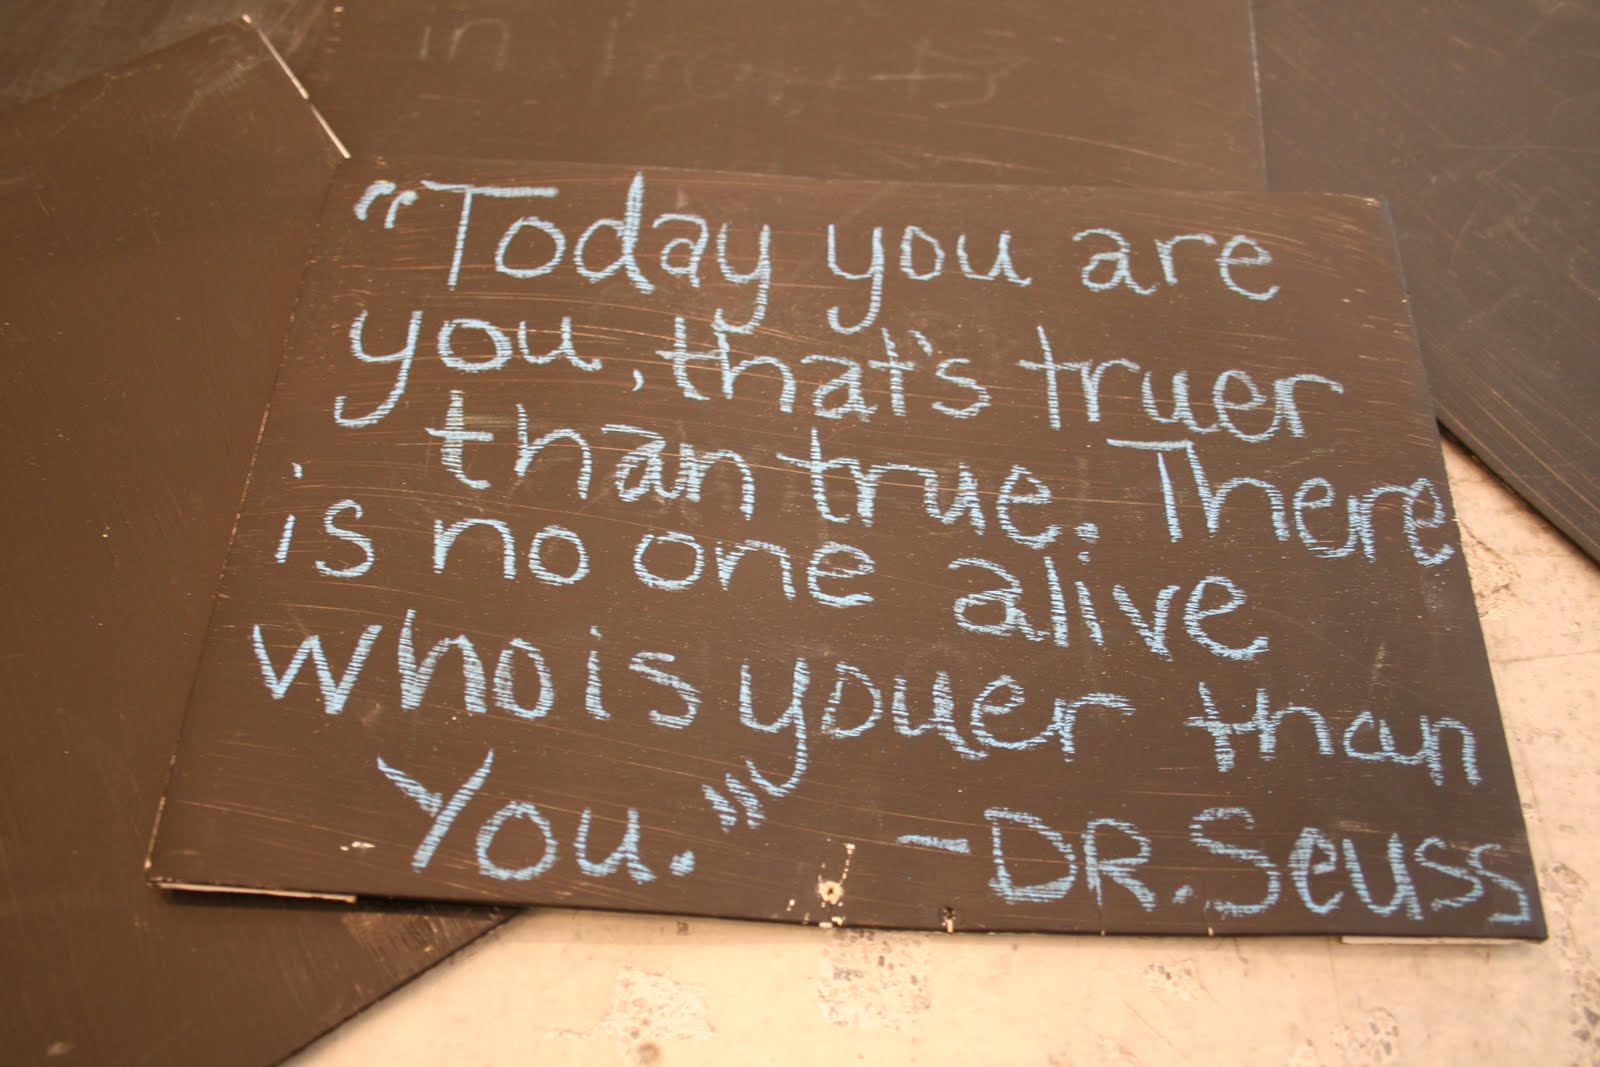 in
"Today you are
you, that's truer
than true. There
is no one alive
who is youer than
You."
-DR. Seuss